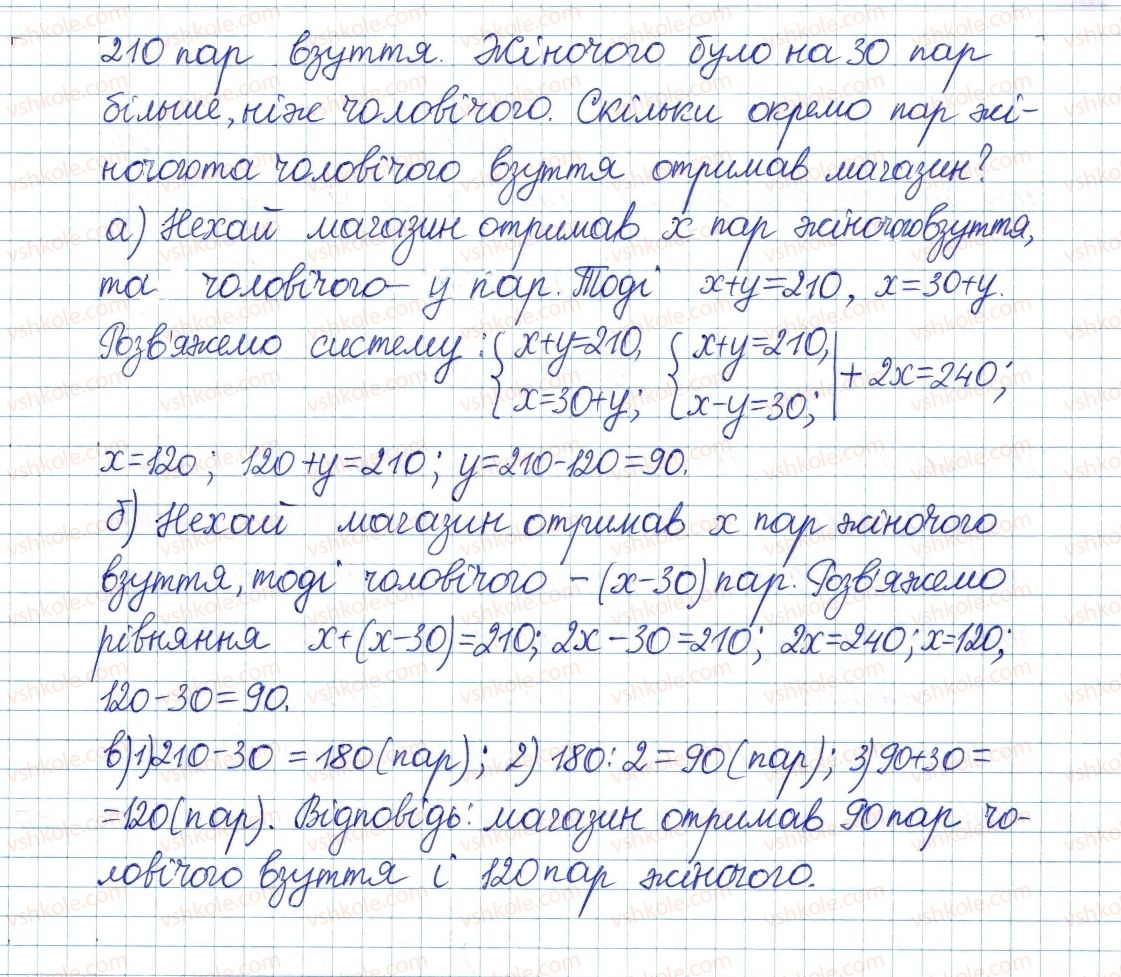 210 пар взуття. Жіночого було на 30 пар
більше, ніж чоловічого. Скільки окремо пар жі-
ночого та чоловічого взуття отримав магазин?
а) Нехай магазин отримав x пар жіночого взуття,
та чоловічого – y пар. Тоді x+y=210, x=30+y.
Розв'яжемо систему: { x+y=210, x=30+y; { x+y=210, x-y=30; | + 2x=240;
x=120; 120+y=210; y=210-120=90.
б) Нехай магазин отримав x пар жіночого
взуття, тоді чоловічого – (x-30) пар. Розв'яжемо
рівняння x+(x-30)=210; 2x-30=210; 2x=240; x=120;
120-30=90.
в) 1) 210-30=180 (пар); 2) 180:2=90 (пар); 3) 90+30=
=120 (пар). Відповідь: магазин отримав 90 пар чо-
ловічого взуття і 120 пар жіночого.
vshkole.com